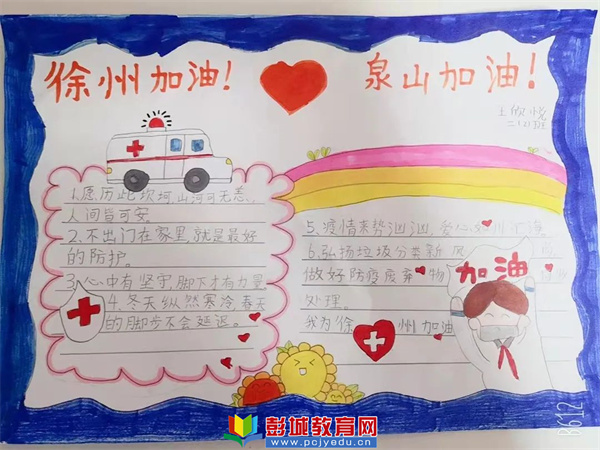 徐州加油!
泉山加油!
二12班
1.愿历此坎坷山河可无恙,
人间皆可安
2.不出门在家里,就是最好
的防护。
3.心中有坚守,脚下才有力量
4.冬天纵然寒冷春天
的脚步不会延迟。
5.疫情来势汹汹,爱心
6.弘扬垃圾分类新风
做好防疫废弃物
处理。
我为徐州加油
加油
彭城教育网
www.pcjyedu.cn
B612